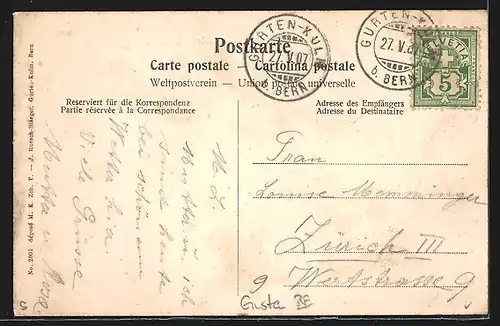 Postkarte
Carte postale — Cartolina postale
Weltpostverein — Union postale universelle
Reserviert für die Korrespondenz
Partie réservée à la Correspondance
Adresse des Empfängers
Adresse du Destinataire
GURTEN-KULM
27.V.07
b. BERN
GURTEN-KULM
27.V.0
b. BERN
HELVETIA
5
M. L.
Mutter u. ich
sind heute
bei schönem
Wetter hier.
Viele Grüsse
Frau
Louise Memminger
Zürich III
9 Wertstrasse 9
Gusta BE